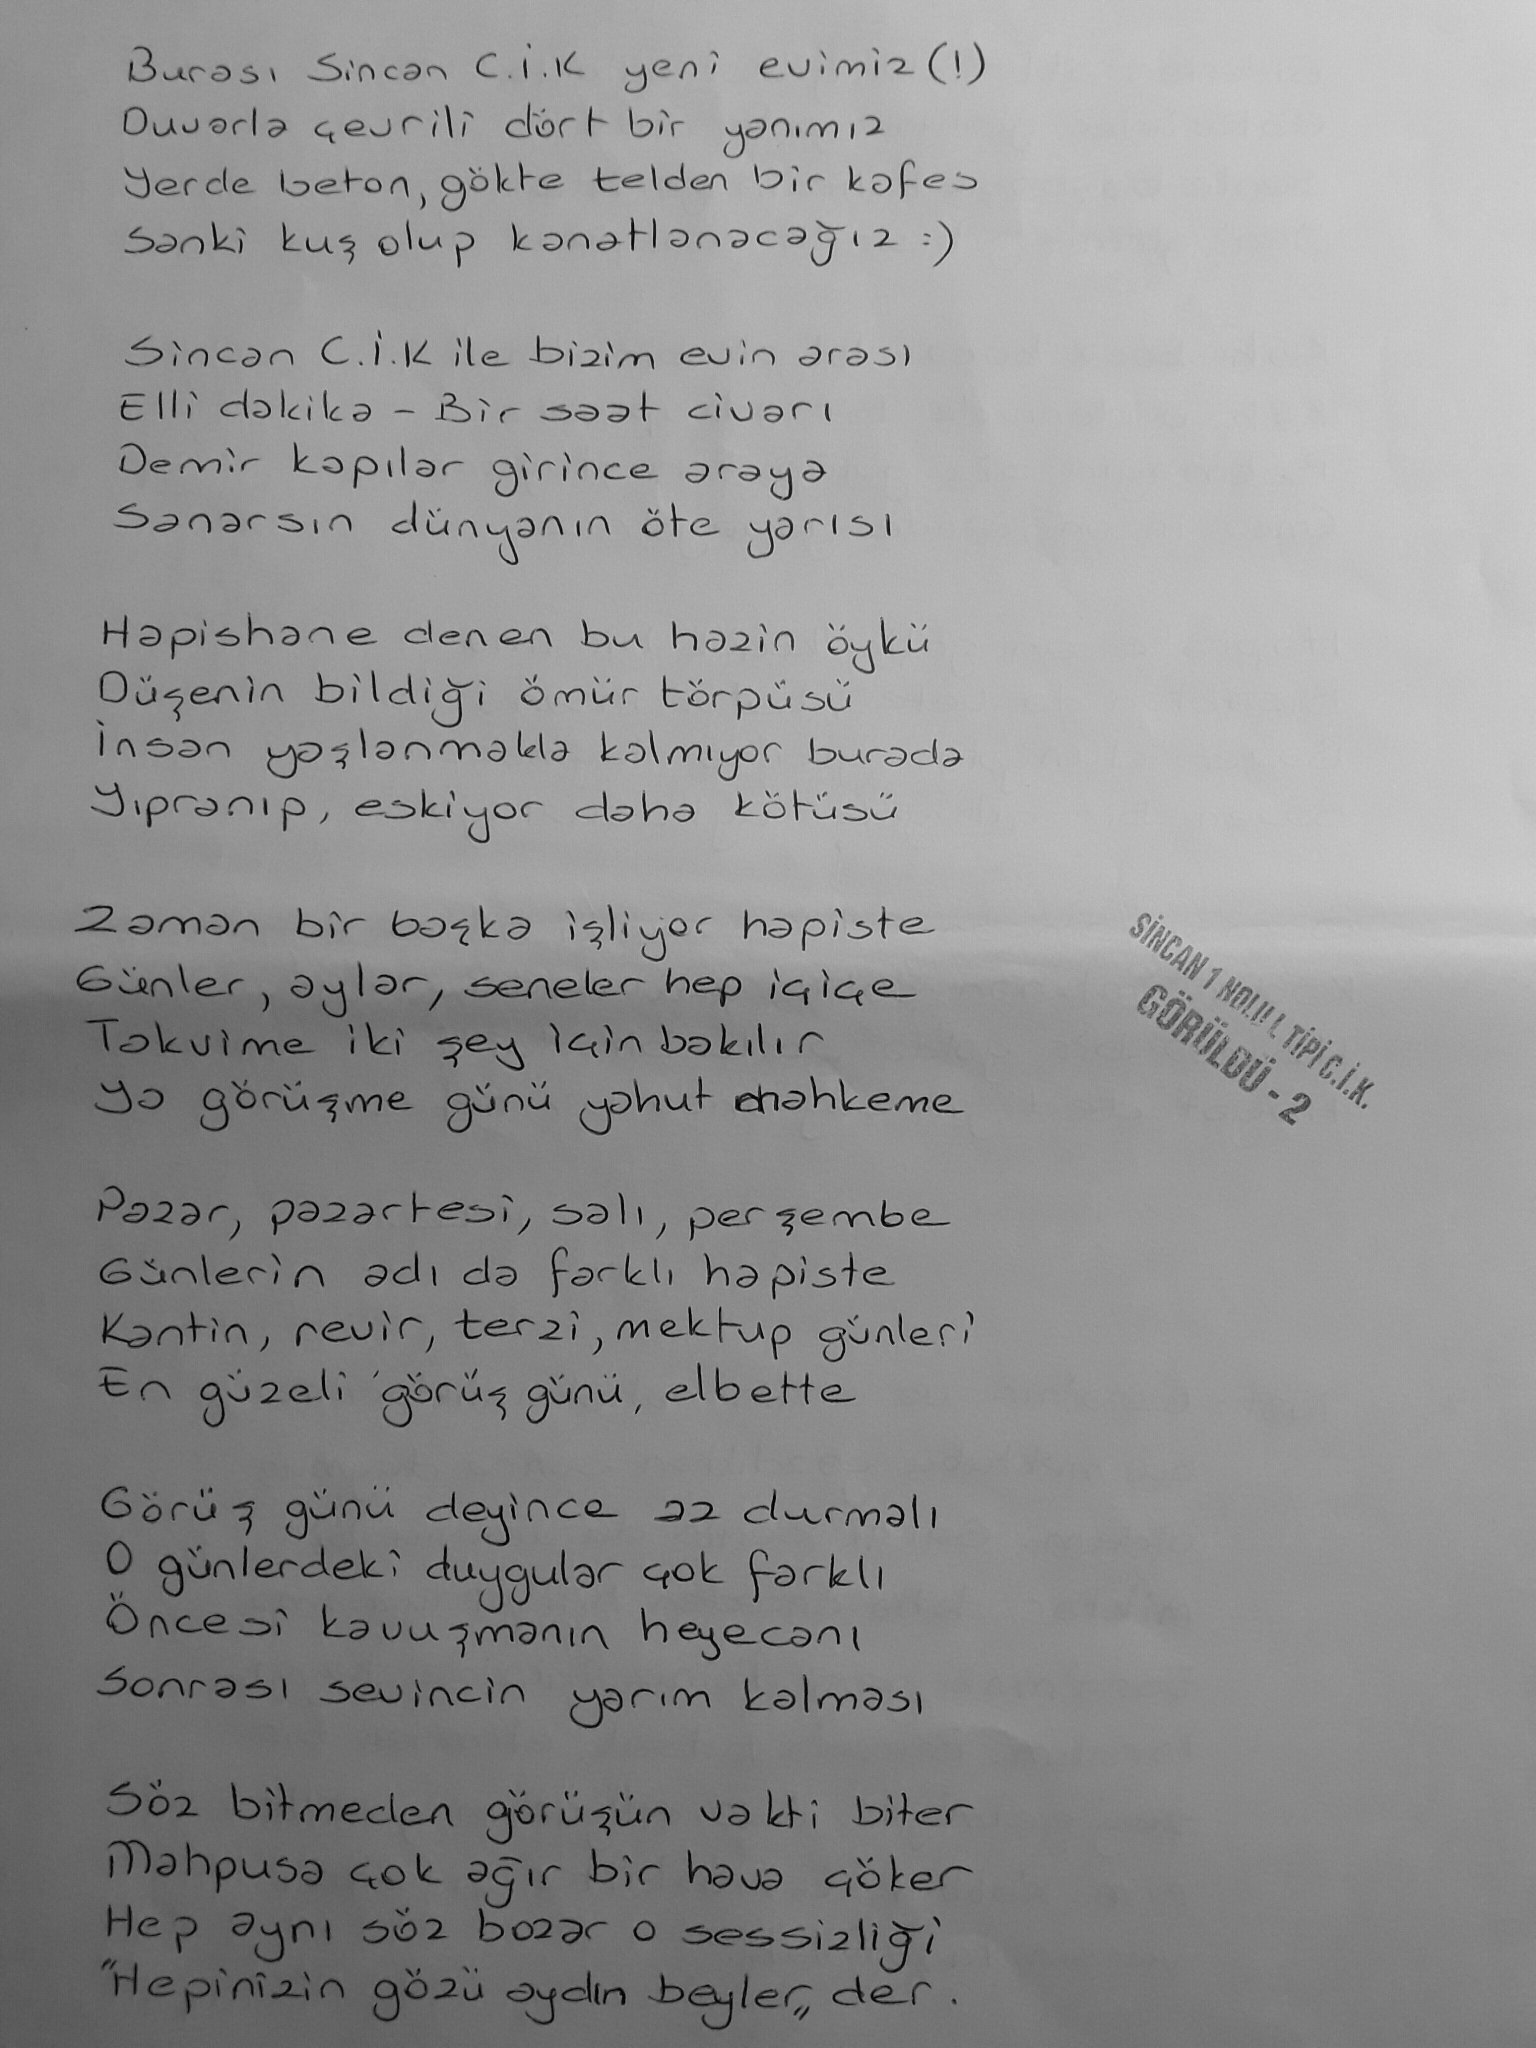 Burası Sincan C.İ.K yeni evimiz (!)
Duvarla çevrili dört bir yanımız
Yerde beton, gökte telden bir kafes
Sanki kuş olup kanatlanacağız :)
Sincan C.İ.K ile bizim evin arası
Elli dakika - Bir saat civarı
Demir kapılar girince araya
Sanarsın dünyanın öte yarısı
Hapishane denen bu hazin öykü
Düşenin bildiği ömür törpüsü
İnsan yaşlanmakla kalmıyor burada
Yıpranıp, eskiyor daha kötüsü
Zaman bir başka işliyor hapiste
Günler, aylar, seneler hep içiçe
Takvime iki şey için bakılır
Ya görüşme günü yahut mahkeme
Pazar, pazartesi, salı, perşembe
Günlerin adı da farklı hapiste
Kantin, revir, terzi, mektup günleri
En güzeli 'görüş günü, elbette
Görüş günü deyince az durmalı
O günlerdeki duygular çok farklı
Öncesi kavuşmanın heyecanı
Sonrası sevincin yarım kalması
Söz bitmeden görüşün vakti biter
Mahpusa çok ağır bir hava çöker
Hep aynı söz bozar o sessizliği
"Hepinizin gözü aydın beyler,, der.
SİNCAN 1 NOLU L TİPİ C.İ.K.
GÖRÜLDÜ - 2